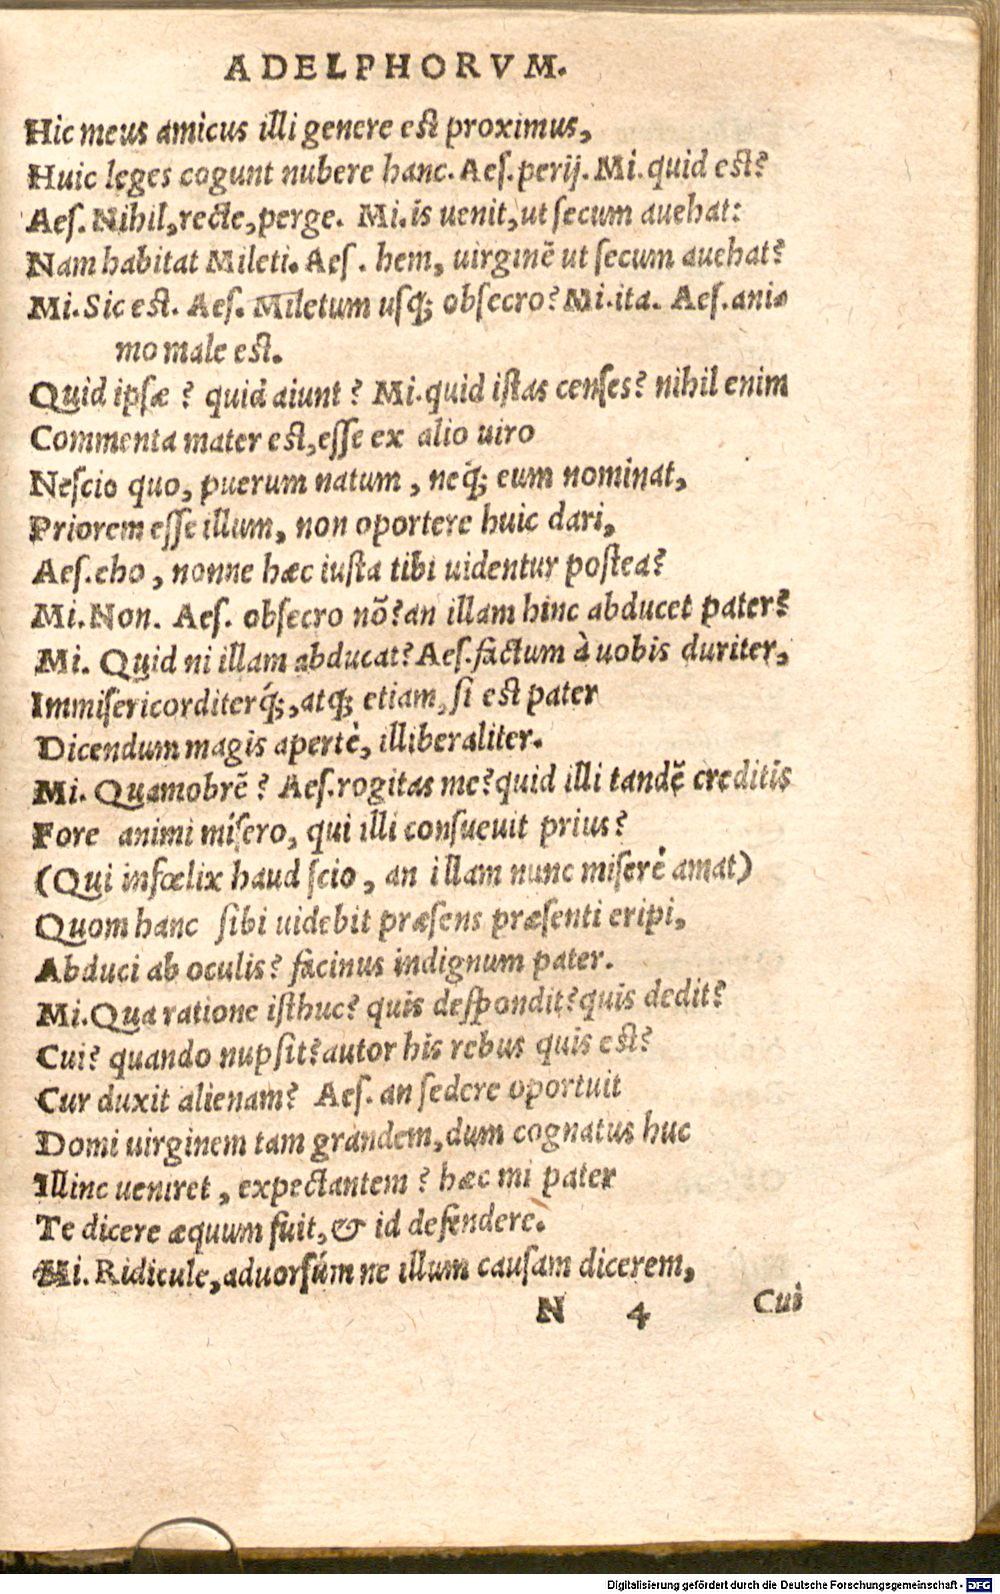 ADELPHORVM.
Hic meus amicus illi genere est proximus,
Huic leges cogunt nubere hanc. Aes. perij. Mi. quid est?
Aes. Nihil, recte, perge. Mi. is uenit, ut secum auehat:
Nam habitat Mileti. Aes. hem, uirginē ut secum auehat?
Mi. Sic est. Aes. Miletum usq; obsecro? Mi. ita. Aes. ani-
mo male est.
Quid ipsæ? quid aiunt? Mi. quid istas censes? nihil enim
Commenta mater est, esse ex alio uiro
Nescio quo, puerum natum, neq́; eum nominat,
Priorem esse illum, non oportere huic dari,
Aes. eho, nonne hæc iusta tibi uidentur postea?
Mi. Non. Aes. obsecro nō? an illam hinc abducet pater?
Mi. Quid ni illam abducat? Aes. factum à uobis duriter,
Immisericorditerq́;, atq; etiam, si est pater
Dicendum magis apertè, illiberaliter.
Mi. Quamobrē? Aes. rogitas me? quid illi tandē creditis
Fore animi misero, qui illi consueuit prius?
(Qui infœlix haud scio, an illam nunc miserè amat)
Quom hanc sibi uidebit præsens præsenti eripi,
Abduci ab oculis? facinus indignum pater.
Mi. Qua ratione isthuc? quis despondit? quis dedit?
Cui? quando nupsit? autor his rebus quis est?
Cur duxit alienam? Aes. an sedere oportuit
Domi uirginem tam grandem, dum cognatus huc
Illinc ueniret, expectantem? hæc mi pater
Te dicere æquum fuit, & id defendere.
Mi. Ridicule, aduorsúm ne illum causam dicerem,
N 4 Cui
Digitalisierung gefördert durch die Deutsche Forschungsgemeinschaft - DFG